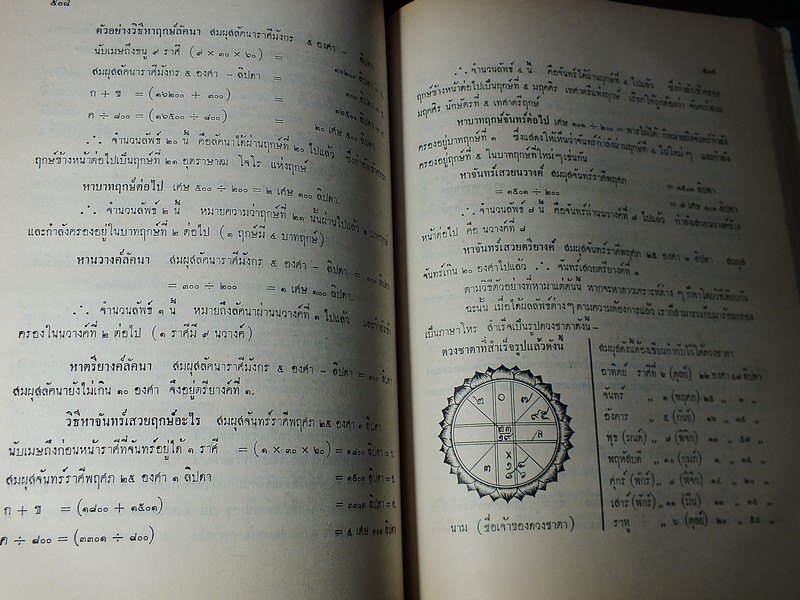 ๕๐๘
ตัวอย่างวิธีหาฤกษ์ลัคนา สมผุสลัคนาราศีมังกร ๕ องศา - ลิปดา
นับเมษถึงธนู ๙ ราศี (๙ × ๓๐ × ๖๐) = ๑๖๒๐๐ ลิปดา
สมผุสลัคนาราศีมังกร ๕ องศา - ลิปดา = ๓๐๐ ลิปดา
ก + ข = (๑๖๒๐๐ + ๓๐๐) = ๑๖๕๐๐ ลิปดา
ค ÷ ๘๐๐ = (๑๖๕๐๐ ÷ ๘๐๐) = ๒๐ เศษ ๕๐๐ ลิปดา
∴ จำนวนลัพธ์ ๒๐ นี้ คือลัคนาได้ผ่านฤกษ์ที่ ๒๐ ไปแล้ว ซึ่งกำลังเข้าครอง
ฤกษ์ข้างหน้าต่อไปเป็นฤกษ์ที่ ๒๑ อุตราษาฒ โจโร แห่งฤกษ์
หาบาทฤกษ์ต่อไป เศษ ๕๐๐ ÷ ๒๐๐ = ๒ เศษ ๑๐๐ ลิปดา.
∴ จำนวนลัพธ์ ๒ นี้ หมายความว่าฤกษ์ที่ ๒๑ นั้นผ่านไปแล้ว ๒ บาทฤกษ์
และกำลังครองอยู่ในบาทฤกษ์ที่ ๓ ต่อไป (๑ ฤกษ์มี ๔ บาทฤกษ์)
หานวางค์ลัคนา สมผุสลัคนาราศีมังกร ๕ องศา - ลิปดา = ๓๐๐ ลิปดา
= ๓๐๐ ÷ ๒๐๐ = ๑ เศษ ๑๐๐ ลิปดา.
∴ จำนวนลัพธ์ ๑ นี้ หมายถึงลัคนาผ่านนวางค์ที่ ๑ ไปแล้ว และกำลังเข้า
ครองในนวางค์ที่ ๒ ต่อไป (๑ ราศีมี ๙ นวางค์)
หาตรียางค์ลัคนา สมผุสลัคนาราศีมังกร ๕ องศา - ลิปดา
สมผุสลัคนายังไม่เกิน ๑๐ องศา จึงอยู่ตรียางค์ที่ ๑.
วิธีหาจันทร์เสวยฤกษ์อะไร สมผุสจันทร์ราศีพฤศภ ๒๕ องศา ๑ ลิปดา
นับเมษถึงก่อนหน้าราศีที่จันทร์อยู่ได้ ๑ ราศี = (๑ × ๓๐ × ๖๐) = ๑๘๐๐ ลิปดา = ก.
สมผุสจันทร์ราศีพฤศภ ๒๕ องศา ๑ ลิปดา = ๑๕๐๑ ลิปดา = ข.
ก + ข = (๑๘๐๐ + ๑๕๐๑) = ๓๓๐๑ ลิปดา = ค.
ค ÷ ๘๐๐ = (๓๓๐๑ ÷ ๘๐๐) = ๔ เศษ ๑๐๑ ลิปดา
∴ จำนวนลัพธ์ ๔ นี้ คือจันทร์ได้ผ่านฤกษ์ที่ ๔ ไปแล้ว ซึ่งกำลังเข้าครอง
ฤกษ์ข้างหน้าต่อไปเป็นฤกษ์ที่ ๕ มฤคศิร เทศาตรีแห่งฤกษ์ เรียกให้ถูกต้องว่า จันทร์เสวย
มฤคศิร นักษัตรที่ ๕ เทศาตรีฤกษ์
หาบาทฤกษ์จันทร์ต่อไป เศษ ๑๐๑ ÷ ๒๐๐ = หารไม่ได้
ครองอยู่บาทฤกษ์ที่ ๑ ซึ่งแสดงให้เห็นว่าจันทร์กำลังผ่านฤกษ์ที่ ๔ ไปใหม่ๆ และกำลัง
ครองอยู่ฤกษ์ที่ ๕ ในบาทฤกษ์ที่ใหม่ๆ เช่นกัน
หาจันทร์เสวยนวางค์ สมผุสจันทร์ราศีพฤศภ = ๑๕๐๑ ลิปดา
= ๑๕๐๑ ÷ ๒๐๐ = ๗ เศษ ๑๐๑ ลิปดา
∴ จำนวนลัพธ์ ๗ นี้ คือจันทร์ผ่านนวางค์ที่ ๗ ไปแล้ว กำลังเสวยนวางค์ข้าง
หน้าต่อไป คือ นวางค์ที่ ๘
หาจันทร์เสวยตรียางค์ สมผุสจันทร์ราศีพฤศภ ๒๕ องศา ๑ ลิปดา สมผุส
จันทร์เกิน ๒๐ องศาไปแล้ว ∴ จันทร์เสวยตรียางค์ที่ ๓
ตามวิธีตัวอย่างที่หามาแต่ต้นนี้ หากจะหาดาวเคราะห์ต่าง ๆ ก็หาโดยวิธีเดียวกัน
ฉะนั้น เมื่อได้ผลลัพธ์ต่างๆ ตามความต้องการแล้ว เราก็สามารถเก็บมาร้อยกรอง
เป็นภาษาโหร สำเร็จเป็นรูปดวงชาตาดังนี้ –
ดวงชาตาที่สำเร็จรูปแล้วดังนี้
๒ ๐ ๗
นาม (ชื่อเจ้าของดวงชาตา)
สมผุสดังนี้ต้องเขียนกำกับไว้ใต้ดวงชาตา
อาทิตย์ ราศีที่ ๖ (ตุลย์) ๒๒ องศา ๔๗ ลิปดา
จันทร์ „ ๑ (พฤศภ) ๒๕ „ ๑ „
อังคาร „ ๕ (กันย์) ๑๖ „ ๑๔ „
พุธ (มนต์) „ ๗ (พิจิก) ๑๓ „ ๕๗ „
พฤหัสบดี „ ๑๐ (กุมภ์) ๑ „ ๑๔ „
ศุกร์ (พักร์) „ ๗ (พิจิก) ๑๔ „ ๒๐ „
เสาร์ (พักร์) „ ๑๑ (มีน) ๑๓ „ ๑๔ „
ราหู „ ๖ (ตุลย์) ๒๐ „ ๕๔ „